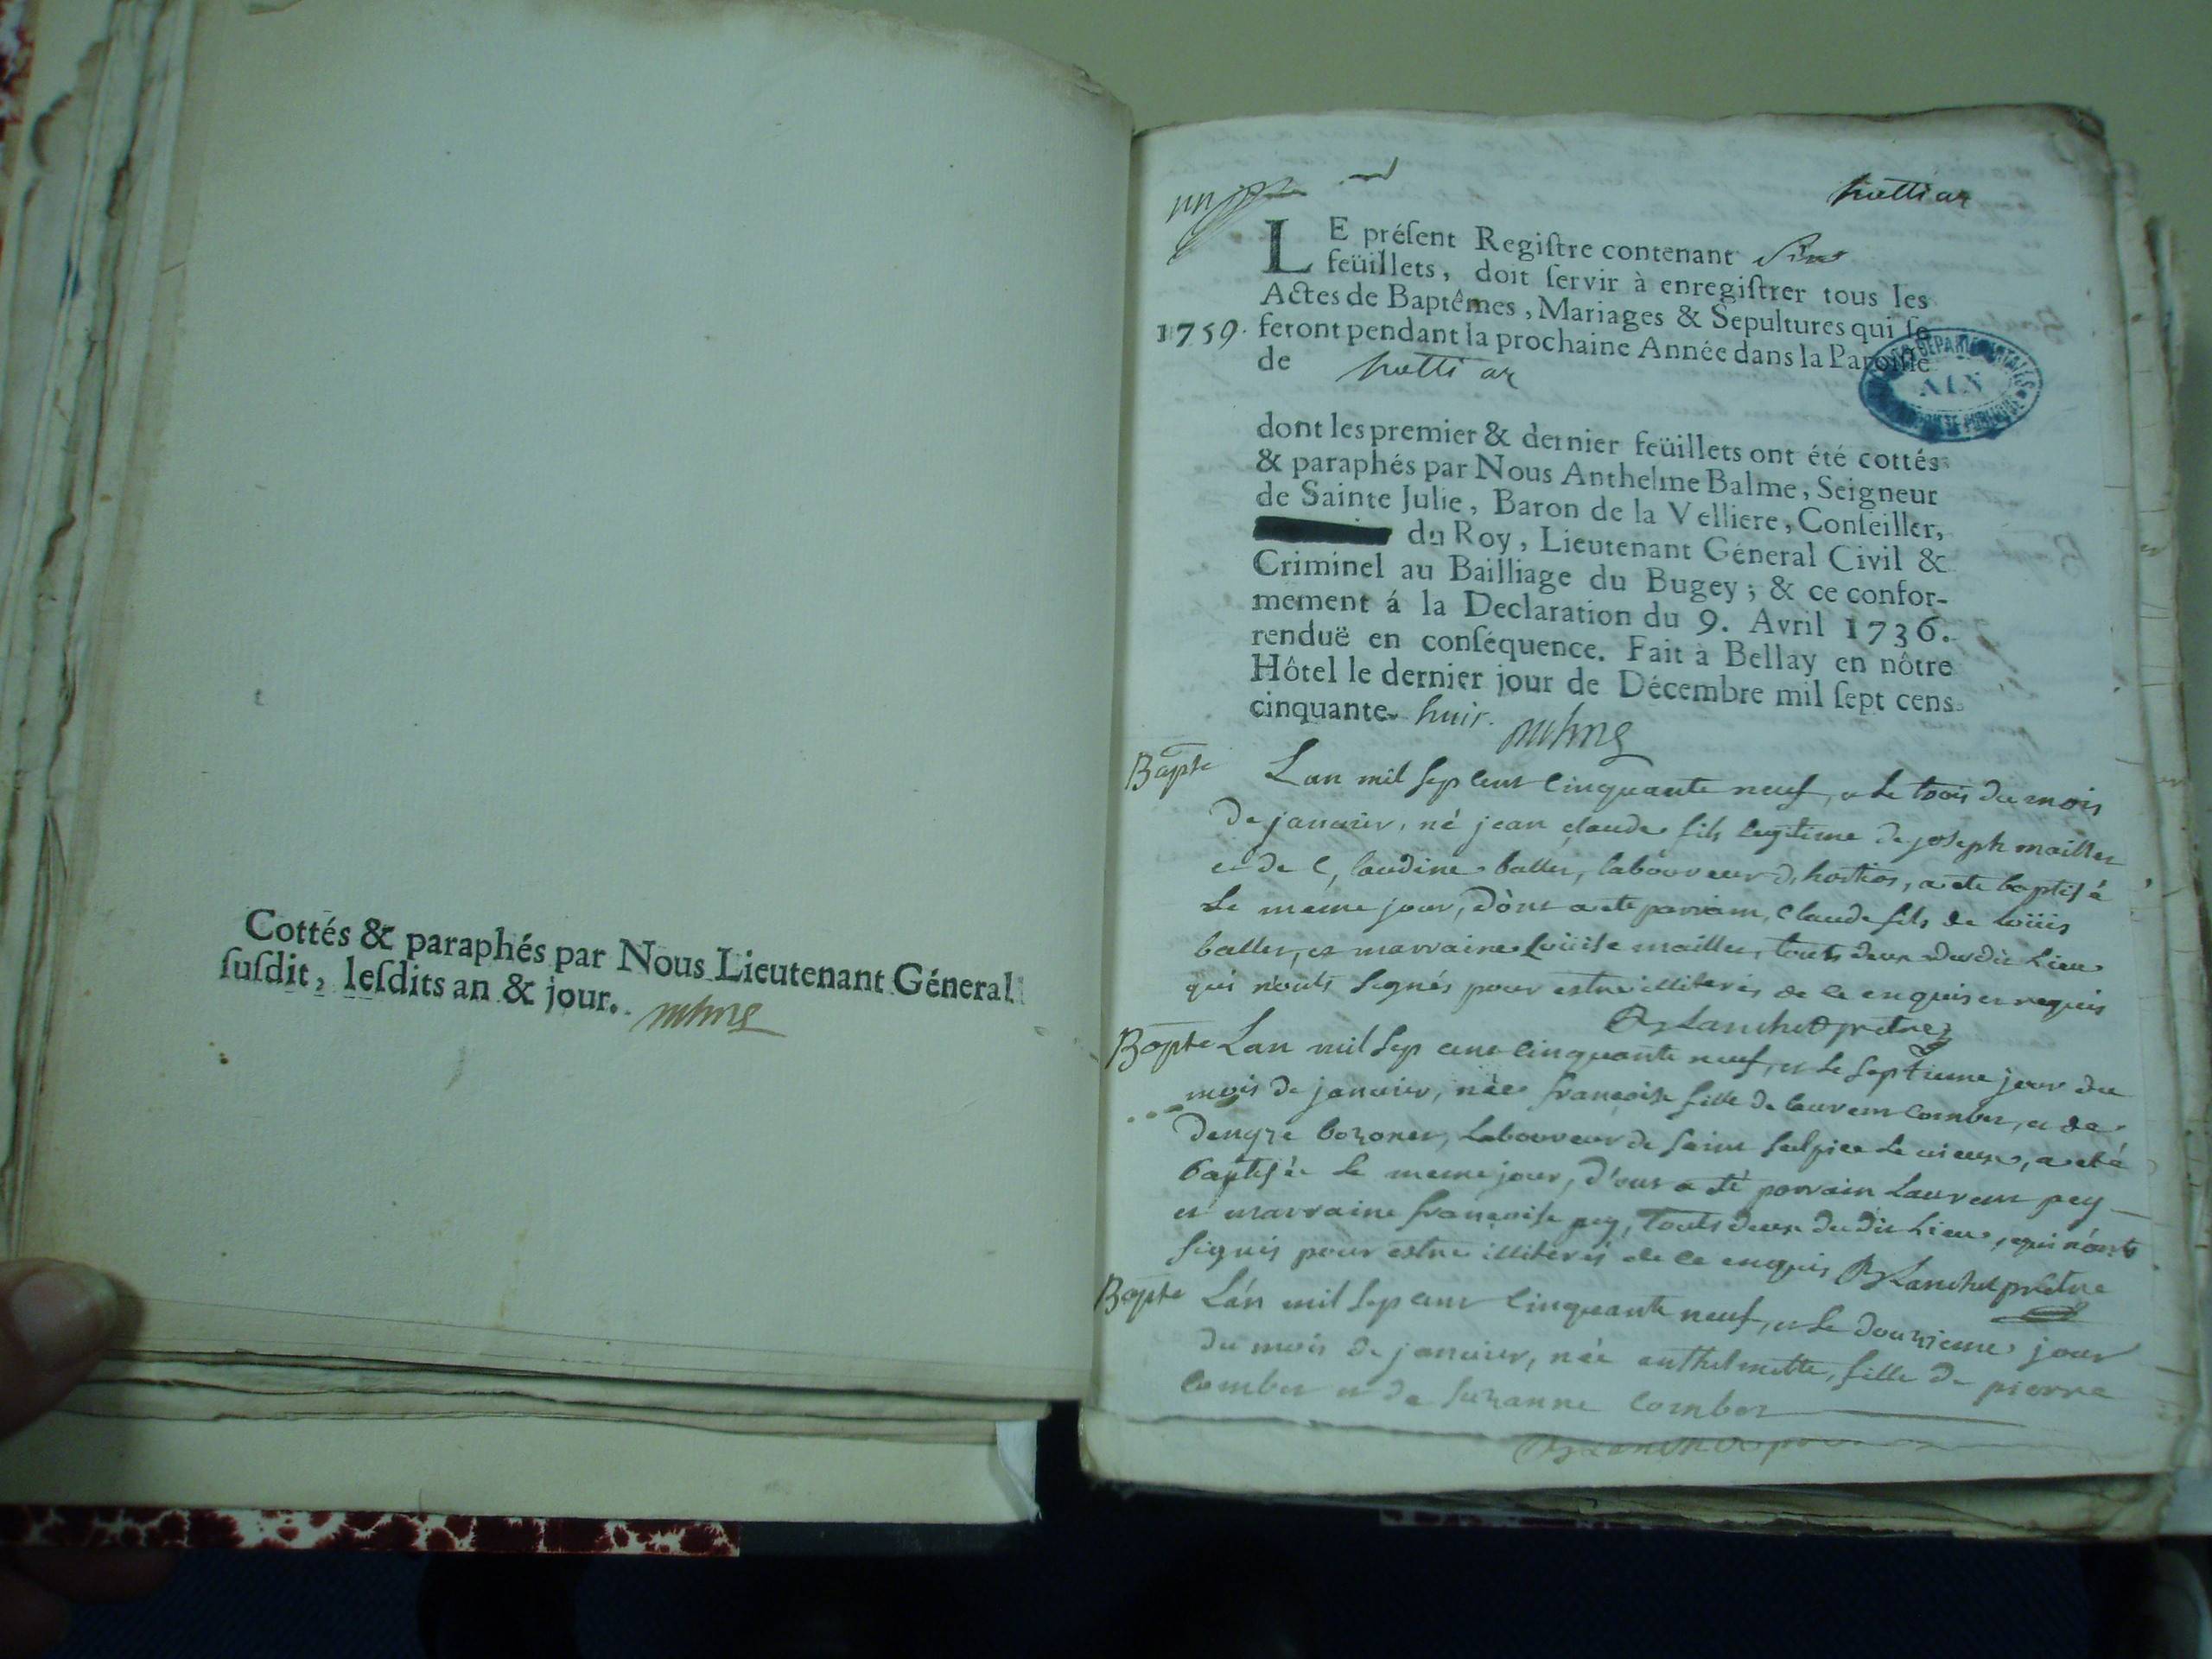 Cottés & paraphés par Nous Lieutenant Géneral
ſuſdit, leſdits an & jour.
huttiar
LE préſent Regiſtre contenant
feüillets, doit ſervir à enregiſtrer tous les
Actes de Baptêmes, Mariages & Sepultures qui ſe
1759. feront pendant la prochaine Année dans la Paroiſſe
de huttiar
ARCHIVES DEPARTEMENTALES
AIN
dont les premier & dernier feüillets ont été cottés
& paraphés par Nous Anthelme Balme, Seigneur
de Sainte Julie, Baron de la Velliere, Conſeiller,
du Roy, Lieutenant Géneral Civil &
Criminel au Bailliage du Bugey; & ce confor-
mement á la Declaration du 9. Avril 1736.
renduë en conſéquence. Fait à Bellay en nôtre
Hôtel le dernier jour de Décembre mil ſept cens
cinquante huit.
Bapte Lan mil sep cent cinquante neuf, et le trois du mois
de janvier, né jean claude fils legitime de joseph maillet
et de Claudine ballet, laboureur d'hostias, a ete baptisé
le meme jour, dont a ete parrain, Claude fils de Loüis
ballet, et marraine Loüise maillet, touts deux dudit Lieu
qui n'onts signés pour estre illiterés de ce enquis et requis
Blanchet pretre
Bapte Lan mil sep cent cinquante neuf, et le septieme jour du
mois de janvier, née françoise fille de laurent combet, et de
denyze bozonet, laboureur de saint sulpice le vieux, a eté
baptisée le meme jour, d'ont a eté parrain Laurent pey
et marraine françoise pey, touts deux du dit Lieu, qui n'onts
signés pour estre illiterés de ce enquis Blanchet pretre
Bapte Lan mil sep cent cinquante neuf, et le douzieme jour
du mois de janvier, née anthelmette, fille de pierre
combet et de suzanne combet
Blanchet